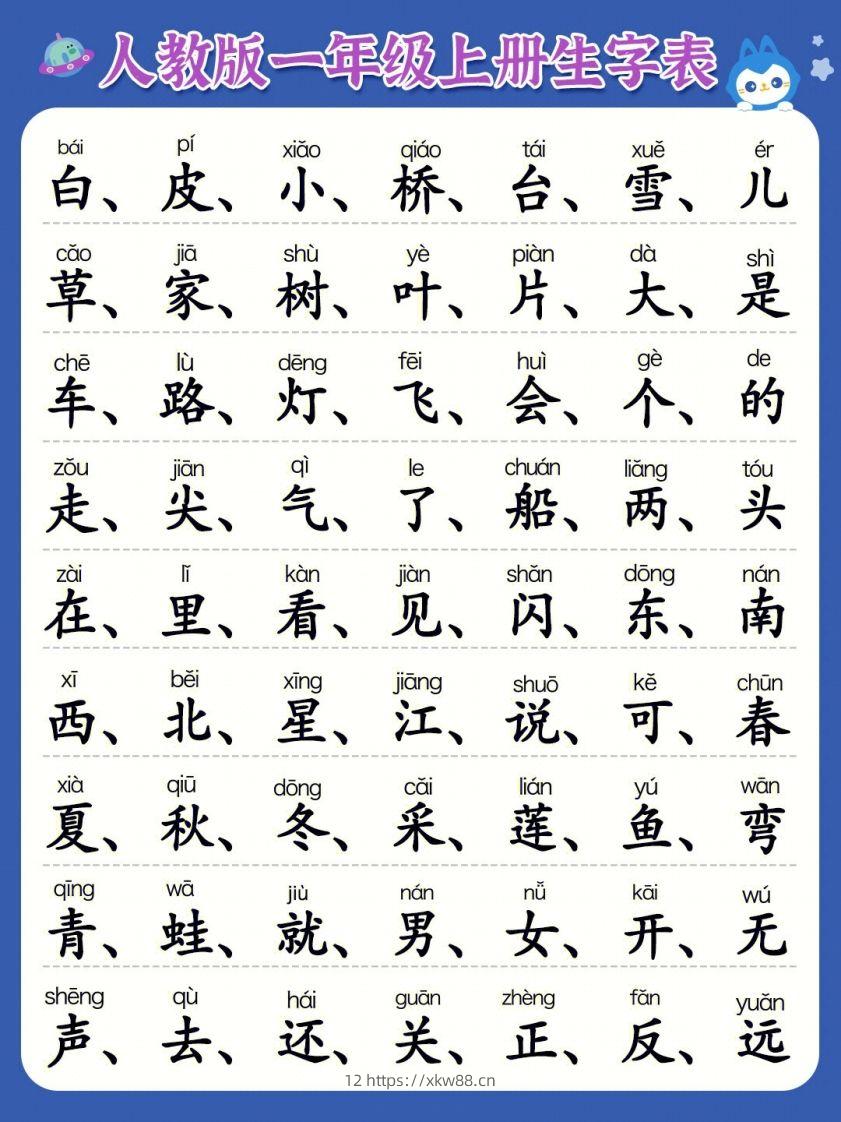 人教版一年级上册生字表
bái pí xiǎo qiáo tái xuě ér
白、皮、小、桥、台、雪、儿
cǎo jiā shù yè piàn dà shì
草、家、树、叶、片、大、是
chē lù dēng fēi huì gè de
车、路、灯、飞、会、个、的
zǒu jiān qì le chuán liǎng tóu
走、尖、气、了、船、两、头
zài lǐ kàn jiàn shǎn dōng nán
在、里、看、见、闪、东、南
xī běi xīng jiāng shuō kě chūn
西、北、星、江、说、可、春
xià qiū dōng cǎi lián yú wān
夏、秋、冬、采、莲、鱼、弯
qīng wā jiù nán nǚ kāi wú
青、蛙、就、男、女、开、无
shēng qù hái guān zhèng fǎn yuǎn
声、去、还、关、正、反、远
12 https://xkw88.cn